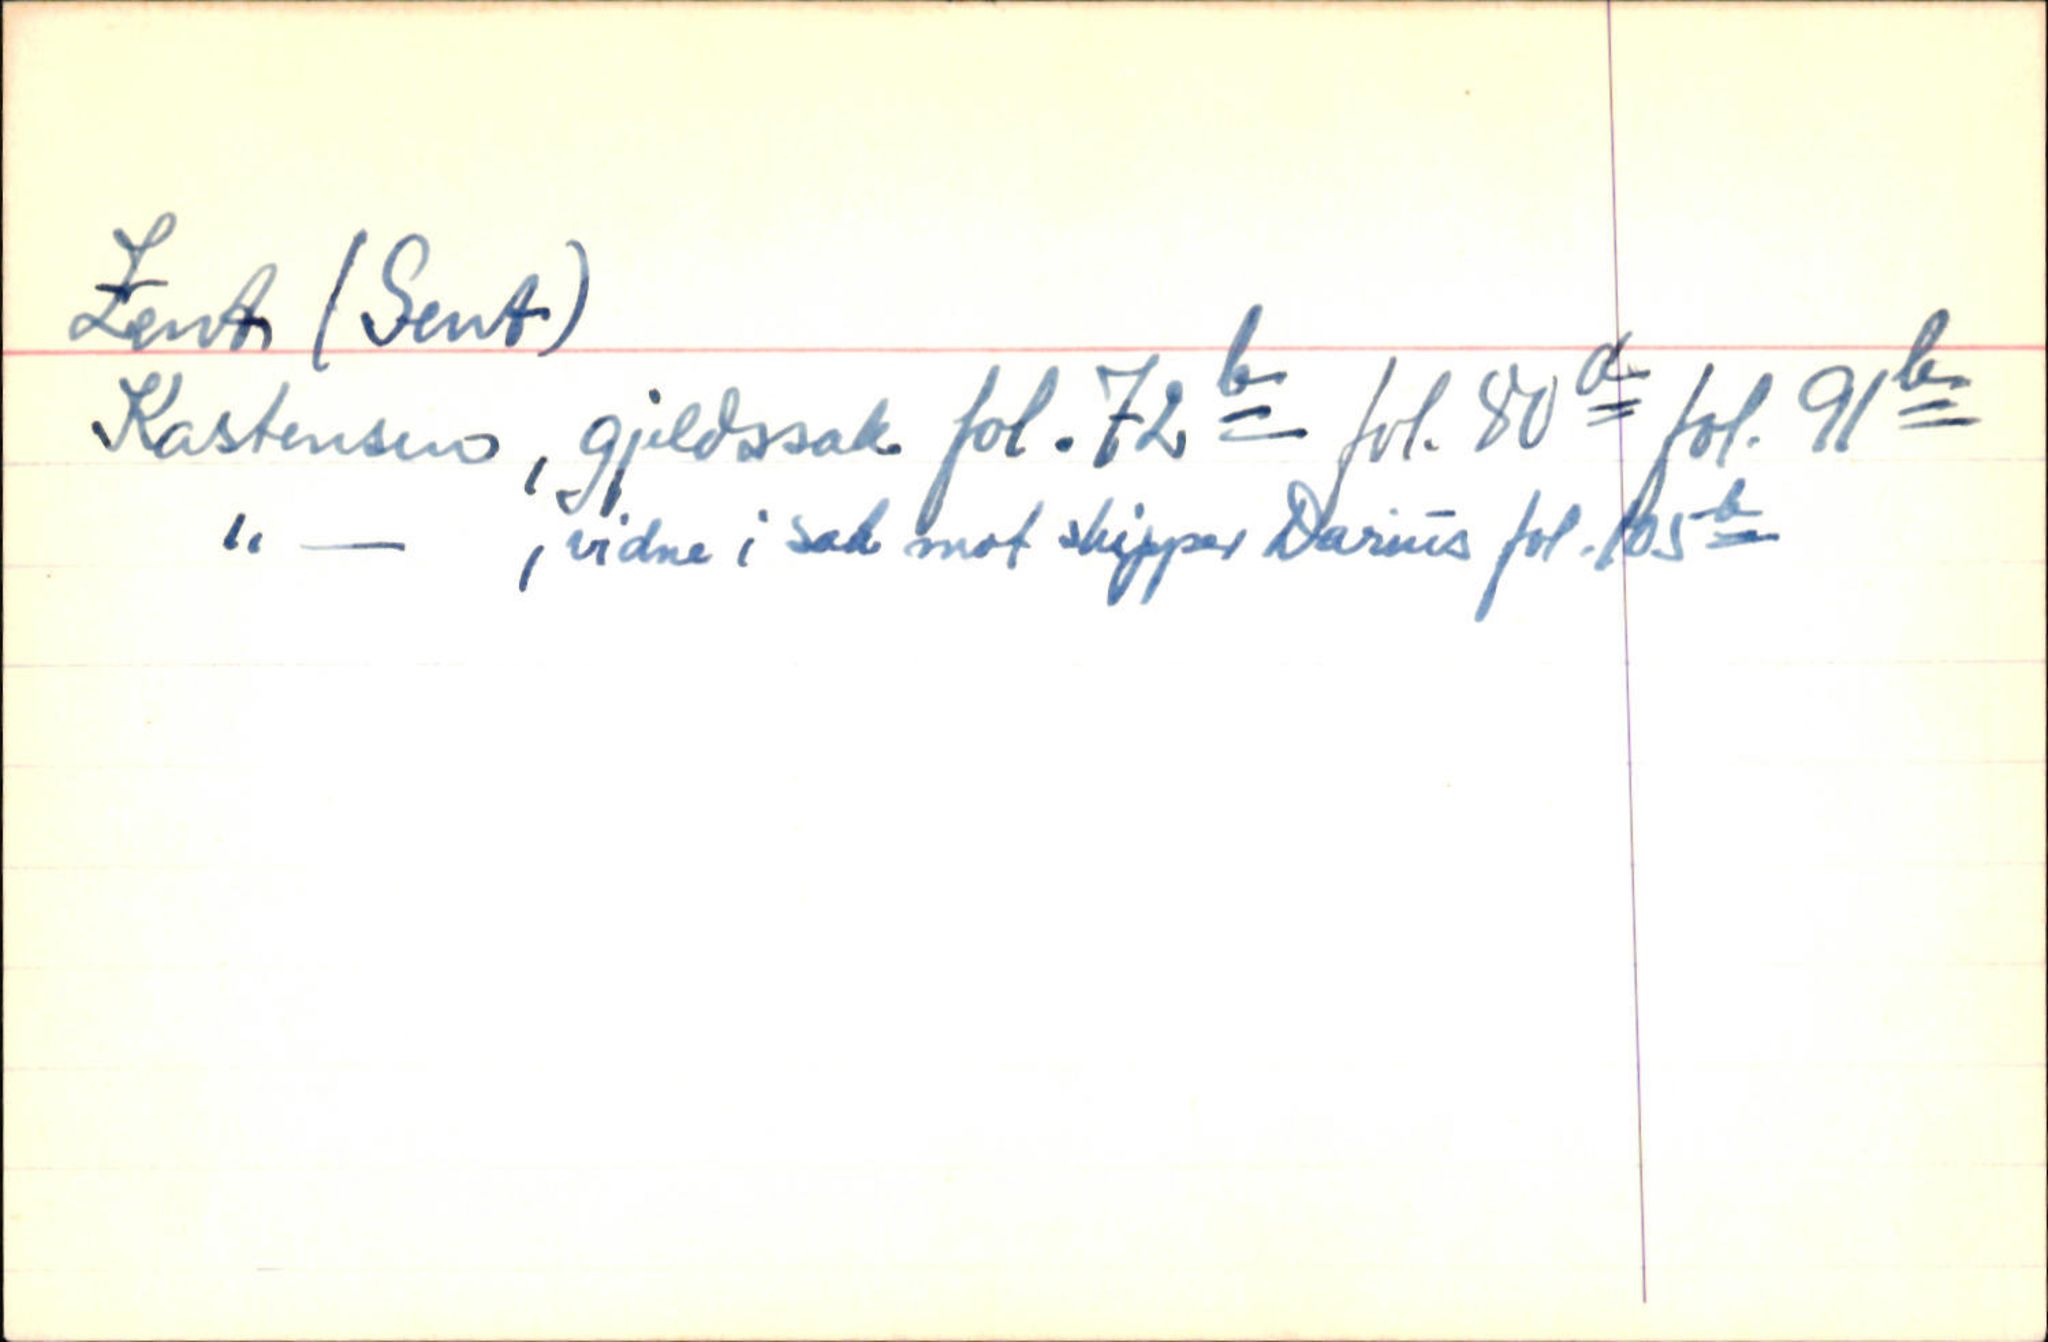 Zent (Sent)
Kastensen, gjeldssak fol. 72b fol. 80a fol. 91b
" — , vidne i sak mot skipper Darius fol. 105b